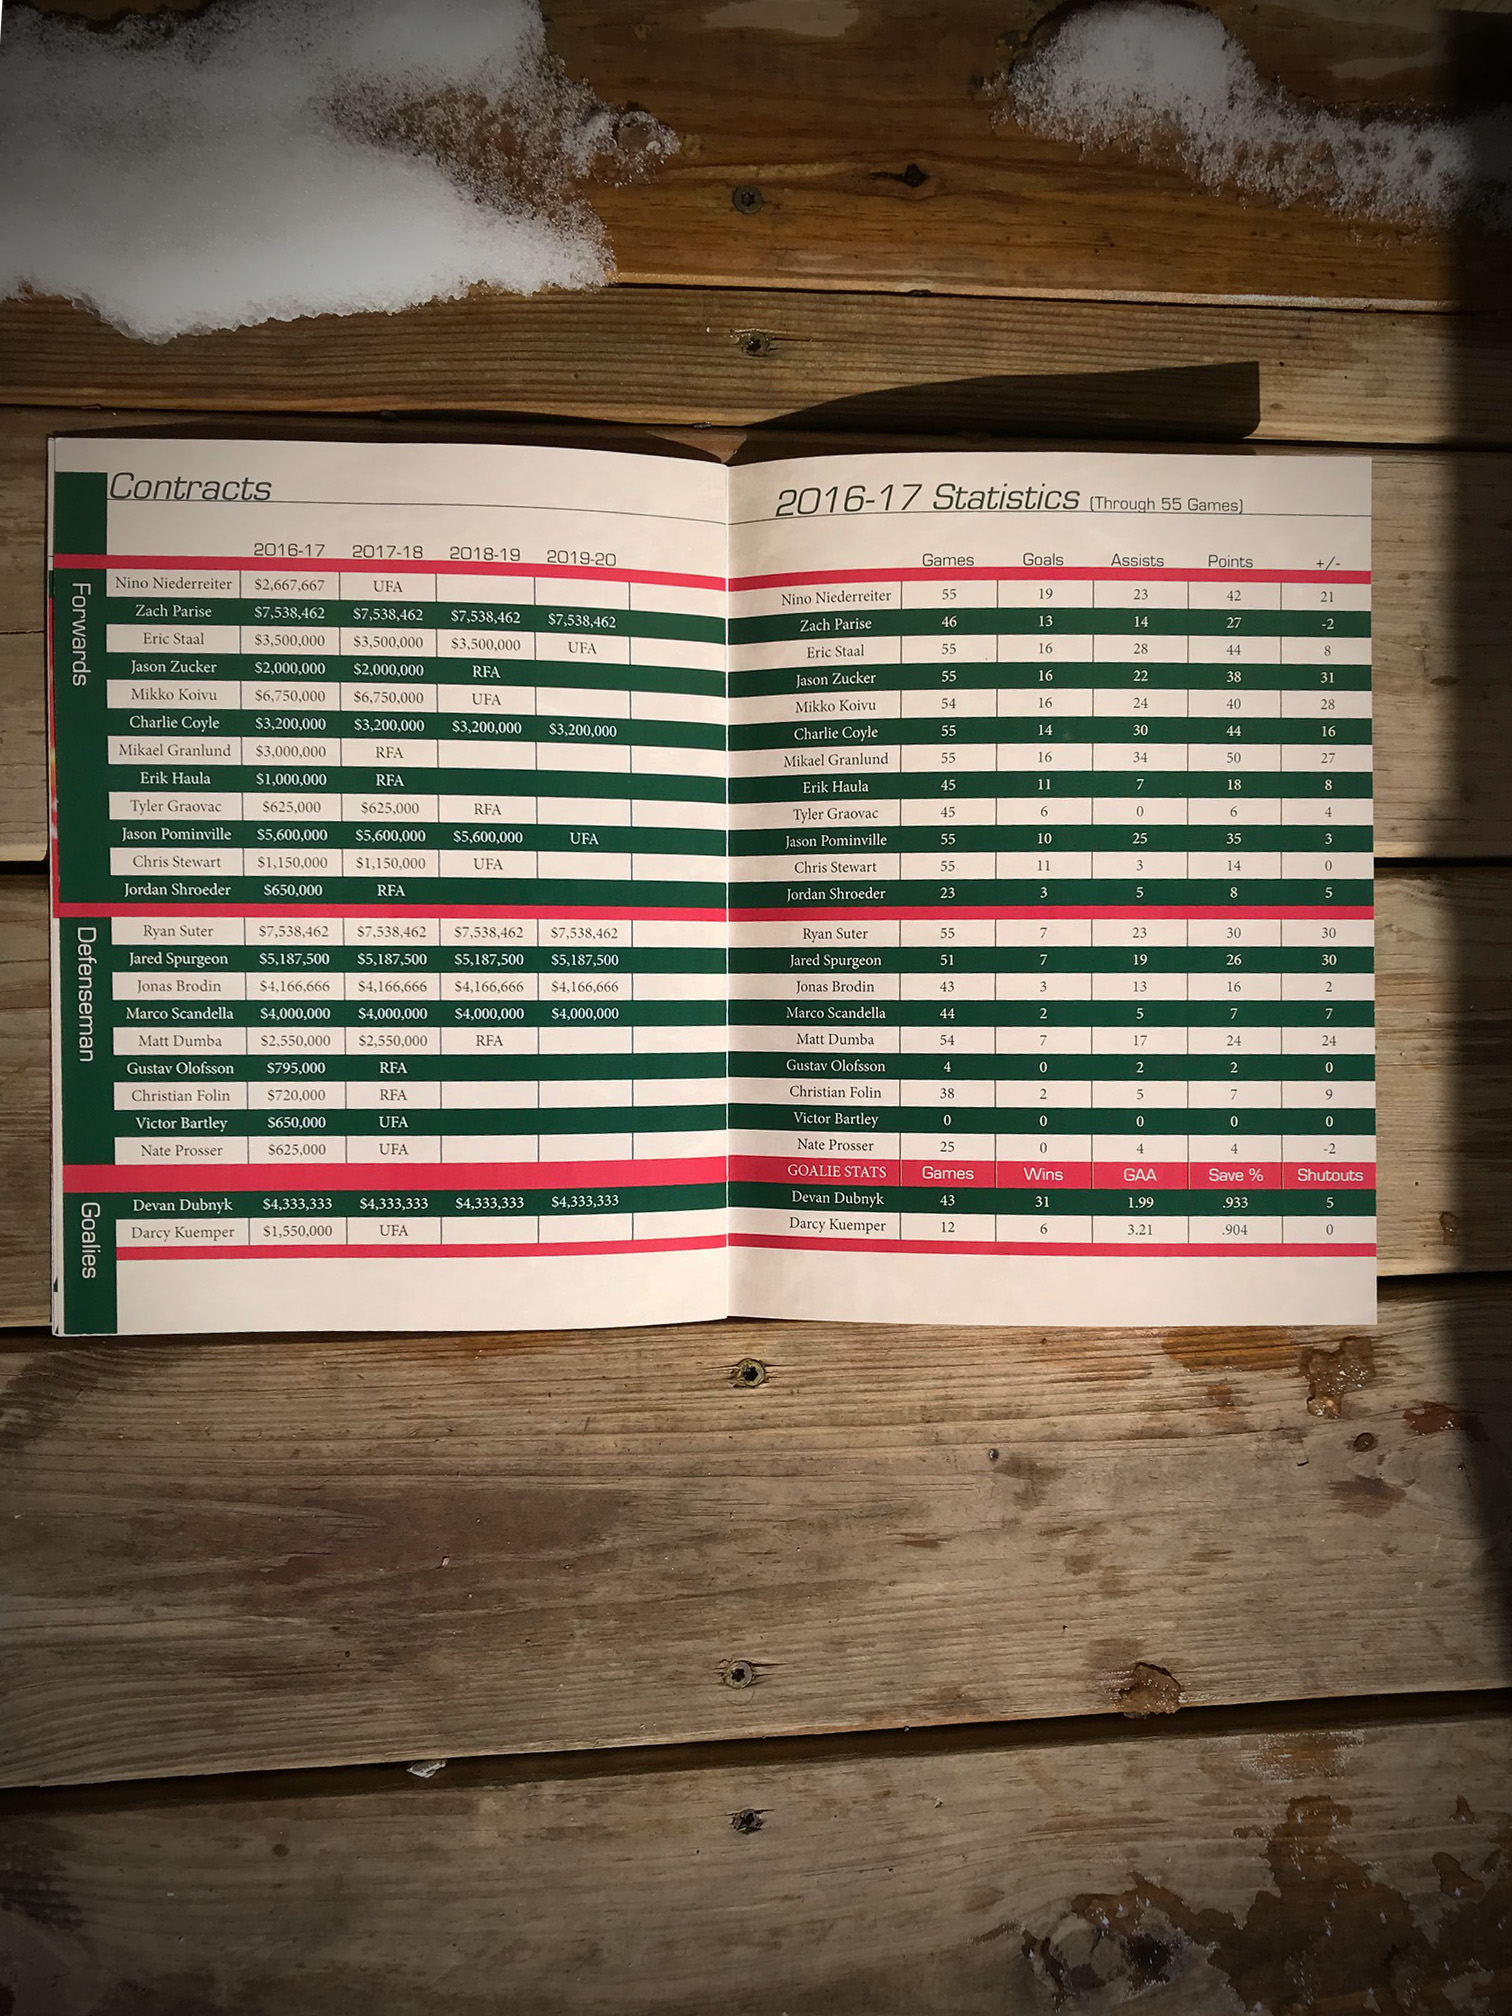 Contracts
2016-17 2017-18 2018-19 2019-20
Forwards
Nino Niederreiter $2,667,667 UFA
Zach Parise $7,538,462 $7,538,462 $7,538,462 $7,538,462
Eric Staal $3,500,000 $3,500,000 $3,500,000 UFA
Jason Zucker $2,000,000 $2,000,000 RFA
Mikko Koivu $6,750,000 $6,750,000 UFA
Charlie Coyle $3,200,000 $3,200,000 $3,200,000 $3,200,000
Mikael Granlund $3,000,000 RFA
Erik Haula $1,000,000 RFA
Tyler Graovac $625,000 $625,000 RFA
Jason Pominville $5,600,000 $5,600,000 $5,600,000 UFA
Chris Stewart $1,150,000 $1,150,000 UFA
Jordan Shroeder $650,000 RFA
Defenseman
Ryan Suter $7,538,462 $7,538,462 $7,538,462 $7,538,462
Jared Spurgeon $5,187,500 $5,187,500 $5,187,500 $5,187,500
Jonas Brodin $4,166,666 $4,166,666 $4,166,666 $4,166,666
Marco Scandella $4,000,000 $4,000,000 $4,000,000 $4,000,000
Matt Dumba $2,550,000 $2,550,000 RFA
Gustav Olofsson $795,000 RFA
Christian Folin $720,000 RFA
Victor Bartley $650,000 UFA
Nate Prosser $625,000 UFA
Goalies
Devan Dubnyk $4,333,333 $4,333,333 $4,333,333 $4,333,333
Darcy Kuemper $1,550,000 UFA
2016-17 Statistics (Through 55 Games)
Games Goals Assists Points +/-
Nino Niederreiter 55 19 23 42 21
Zach Parise 46 13 14 27 -2
Eric Staal 55 16 28 44 8
Jason Zucker 55 16 22 38 31
Mikko Koivu 54 16 24 40 28
Charlie Coyle 55 14 30 44 16
Mikael Granlund 55 16 34 50 27
Erik Haula 45 11 7 18 8
Tyler Graovac 45 6 0 6 4
Jason Pominville 55 10 25 35 3
Chris Stewart 55 11 3 14 0
Jordan Shroeder 23 3 5 8 5
Ryan Suter 55 7 23 30 30
Jared Spurgeon 51 7 19 26 30
Jonas Brodin 43 3 13 16 2
Marco Scandella 44 2 5 7 7
Matt Dumba 54 7 17 24 24
Gustav Olofsson 4 0 2 2 0
Christian Folin 38 2 5 7 9
Victor Bartley 0 0 0 0 0
Nate Prosser 25 0 4 4 -2
GOALIE STATS Games Wins GAA Save % Shutouts
Devan Dubnyk 43 31 1.99 .933 5
Darcy Kuemper 12 6 3.21 .904 0